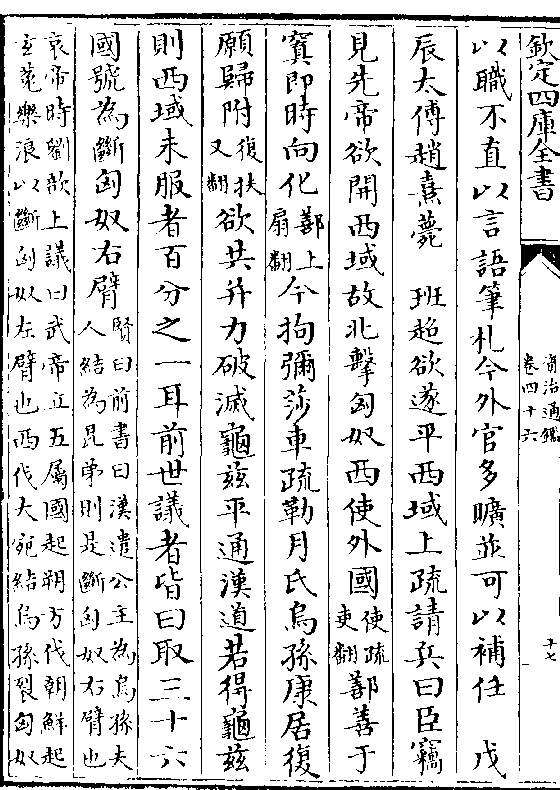 欽定四庫全書
資治通鑑
卷四十六
十七
以職不直以言語筆札今外官多曠並可以補任　戊
辰太傅趙熹薨　班超欲遂平西域上疏請兵曰臣竊
見先帝欲開西域故北擊匈奴西使外國使疏吏翻鄯善于
窴即時向化鄯上扇翻今拘彌莎車疏勒月氏烏孫康居復
願歸附復扶又翻欲共并力破滅龜茲平通漢道若得龜茲
則西域未服者百分之一耳前世議者皆曰取三十六
國號為斷匈奴右臂賢曰前書曰漢遣公主為烏孫夫人結為昆弟則是斷匈奴右臂也
哀帝時劉歆上議曰武帝立五屬國起朔方伐朝鮮起玄菟樂浪以斷匈奴左臂也西伐大宛結烏孫裂匈奴